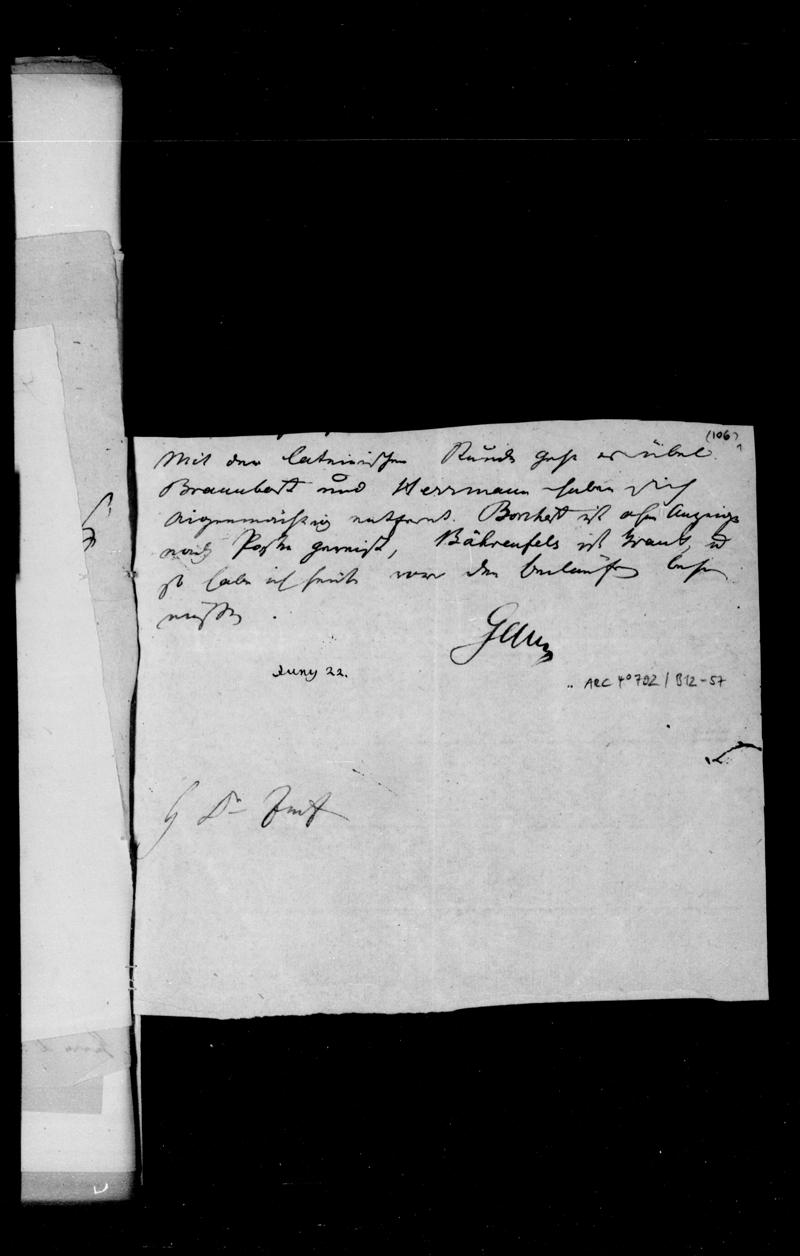 (106)
Mit den lateinischen Stunden geht es übel.
Braunhardt und Herrmann haben sich
eigenmächtig entfernt. Borchardt ist ohne Anzeige
nach Posen gereist, Bährenfels ist krank, u
so habe ich heute vor den
müssen.
Gans
Juny 22.
ARC 4° 792 / B12-57
H Dr Zunz